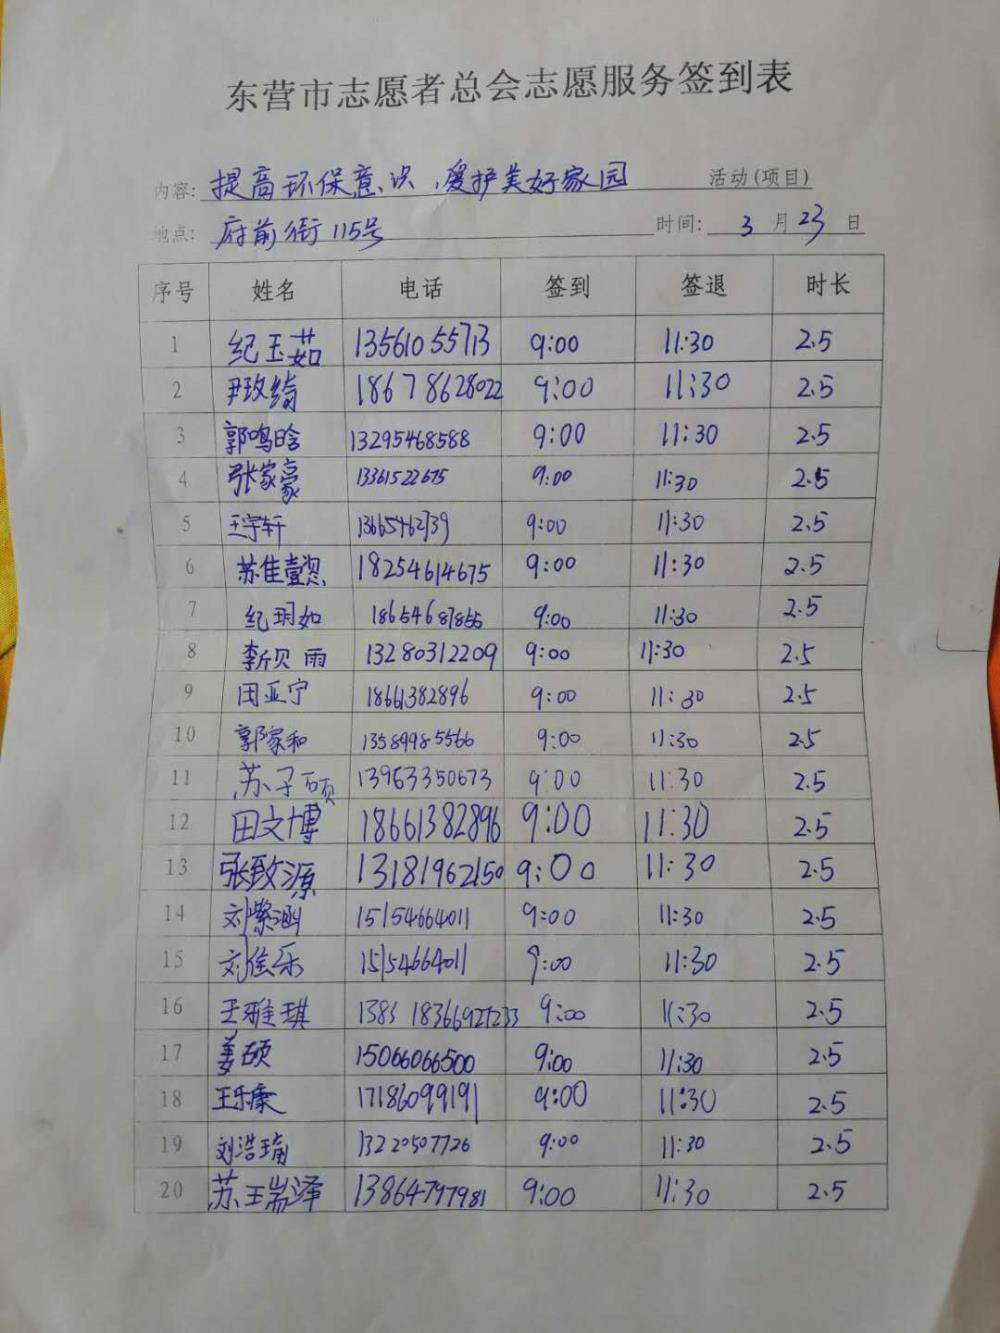 东营市志愿者总会志愿服务签到表
内容: 提高环保意识,爱护美好家园 活动(项目)
地点: 府前街115号 时间: 3月23日
序号 姓名 电话 签到 签退 时长
1 纪玉茹 13561055713 9:00 11:30 2.5
2 尹玫绮 18678628022 9:00 11:30 2.5
3 郭鸣晗 13295468588 9:00 11:30 2.5
4 张家豪 13361522675 9:00 11:30 2.5
5 王宇轩 13665462739 9:00 11:30 2.5
6 苏佳壹 18254614675 9:00 11:30 2.5
7 纪玥如 18654687855 9:00 11:30 2.5
8 李忻贝雨 13280312209 9:00 11:30 2.5
9 田亚宁 18661382896 9:00 11:30 2.5
10 郭家和 13589985566 9:00 11:30 2.5
11 苏子硕 13963350673 9:00 11:30 2.5
12 田文博 18661382896 9:00 11:30 2.5
13 张致源 13181962150 9:00 11:30 2.5
14 刘紫涵 15154664011 9:00 11:30 2.5
15 刘佳乐 15154664011 9:00 11:30 2.5
16 王雅琪 1383 18366927233 9:00 11:30 2.5
17 姜硕 15066066500 9:00 11:30 2.5
18 王乐康 17186099191 9:00 11:30 2.5
19 刘浩 13220507726 9:00 11:30 2.5
20 苏王瑞泽 13864797981 9:00 11:30 2.5